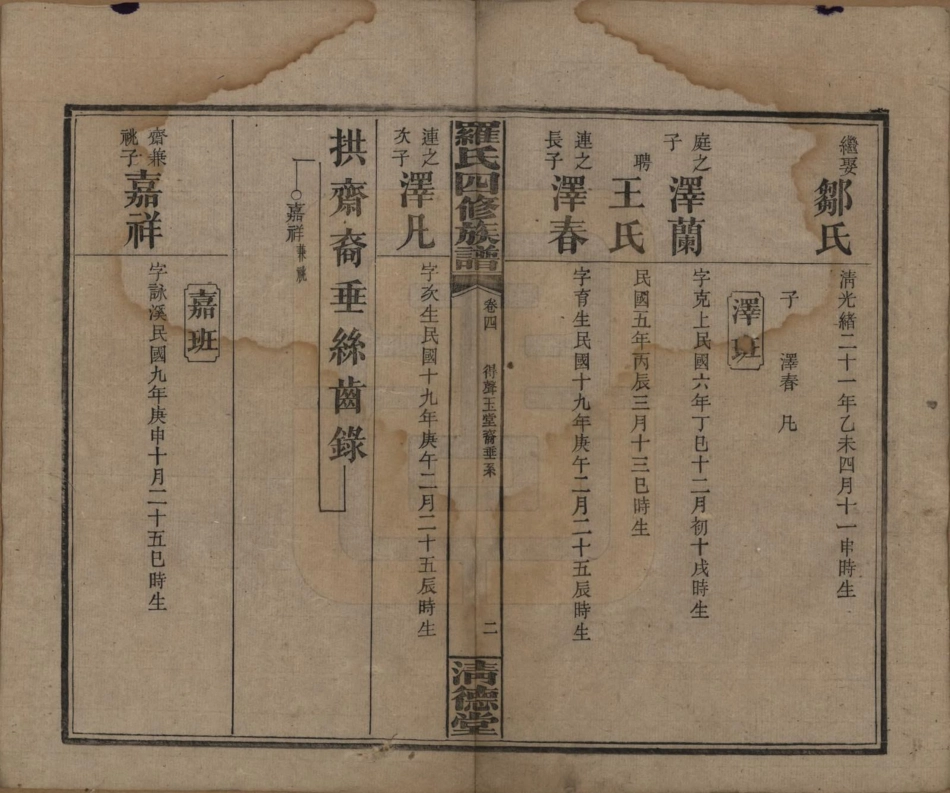 繼娶
鄒氏
淸光緒二十一年乙未四月十一申時生
子 澤春 凡
澤班
庭之子
澤蘭
字克上民國六年丁巳十二月初十戌時生
聘
王氏
民國五年丙辰三月十三巳時生
連之長子
澤春
字育生民國十九年庚午二月二十五辰時生
羅氏四修族譜
卷四
得聲玉堂裔垂系
二
淸德堂
連之次子
澤凡
字亥生民國十九年庚午二月二十五辰時生
拱齋裔垂絲齒錄
嘉祥兼祧
嘉班
齋兼祧子
嘉祥
字詠溪民國九年庚申十月二十五巳時生